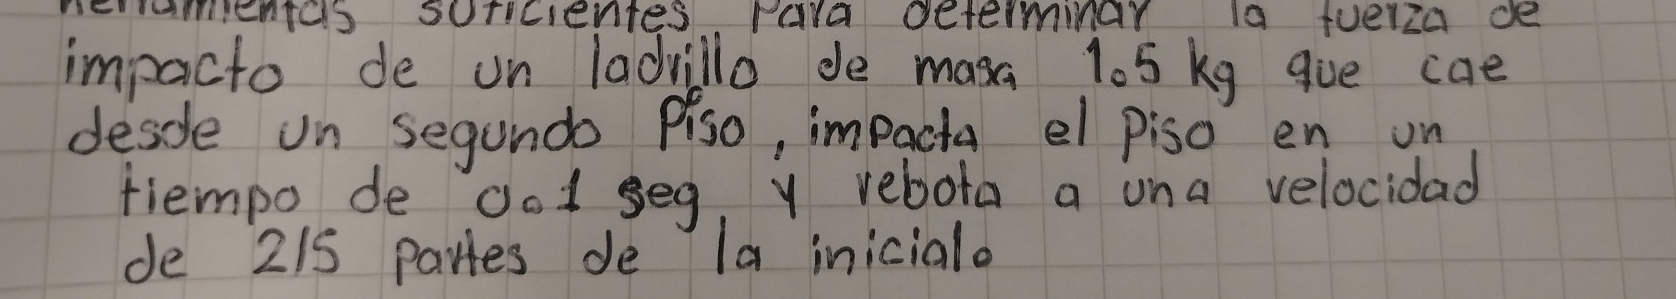 herramientas suficientes para determinar la fuerza de
impacto de un ladrillo de masa 1.5 kg que cae
desde un segundo piso, impacta el piso en un
tiempo de 0.1 seg, y rebota a una velocidad
de 2/5 partes de la inicial.